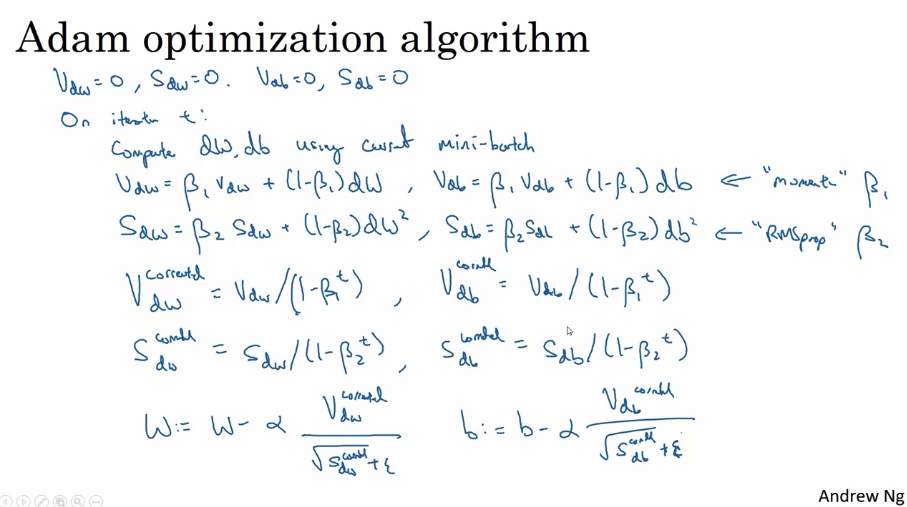 Adam optimization algorithm
V_dw = 0, S_dw = 0. V_db = 0, S_db = 0
On iteration t:
Compute dW, db using current mini-batch
V_dw = β₁ V_dw + (1-β₁) dW , V_db = β₁ V_db + (1-β₁) db ← "momentum" β₁
S_dw = β₂ S_dw + (1-β₂) dW² , S_db = β₂ S_db + (1-β₂) db² ← "RMSprop" β₂
V_dw^corrected = V_dw / (1-β₁^t) , V_db^corrected = V_db / (1-β₁^t)
S_dw^corrected = S_dw / (1-β₂^t) , S_db^corrected = S_db / (1-β₂^t)
W := W - α V_dw^corrected / (√S_dw^corrected + ε) b := b - α V_db^corrected / (√S_db^corrected + ε)
Andrew Ng